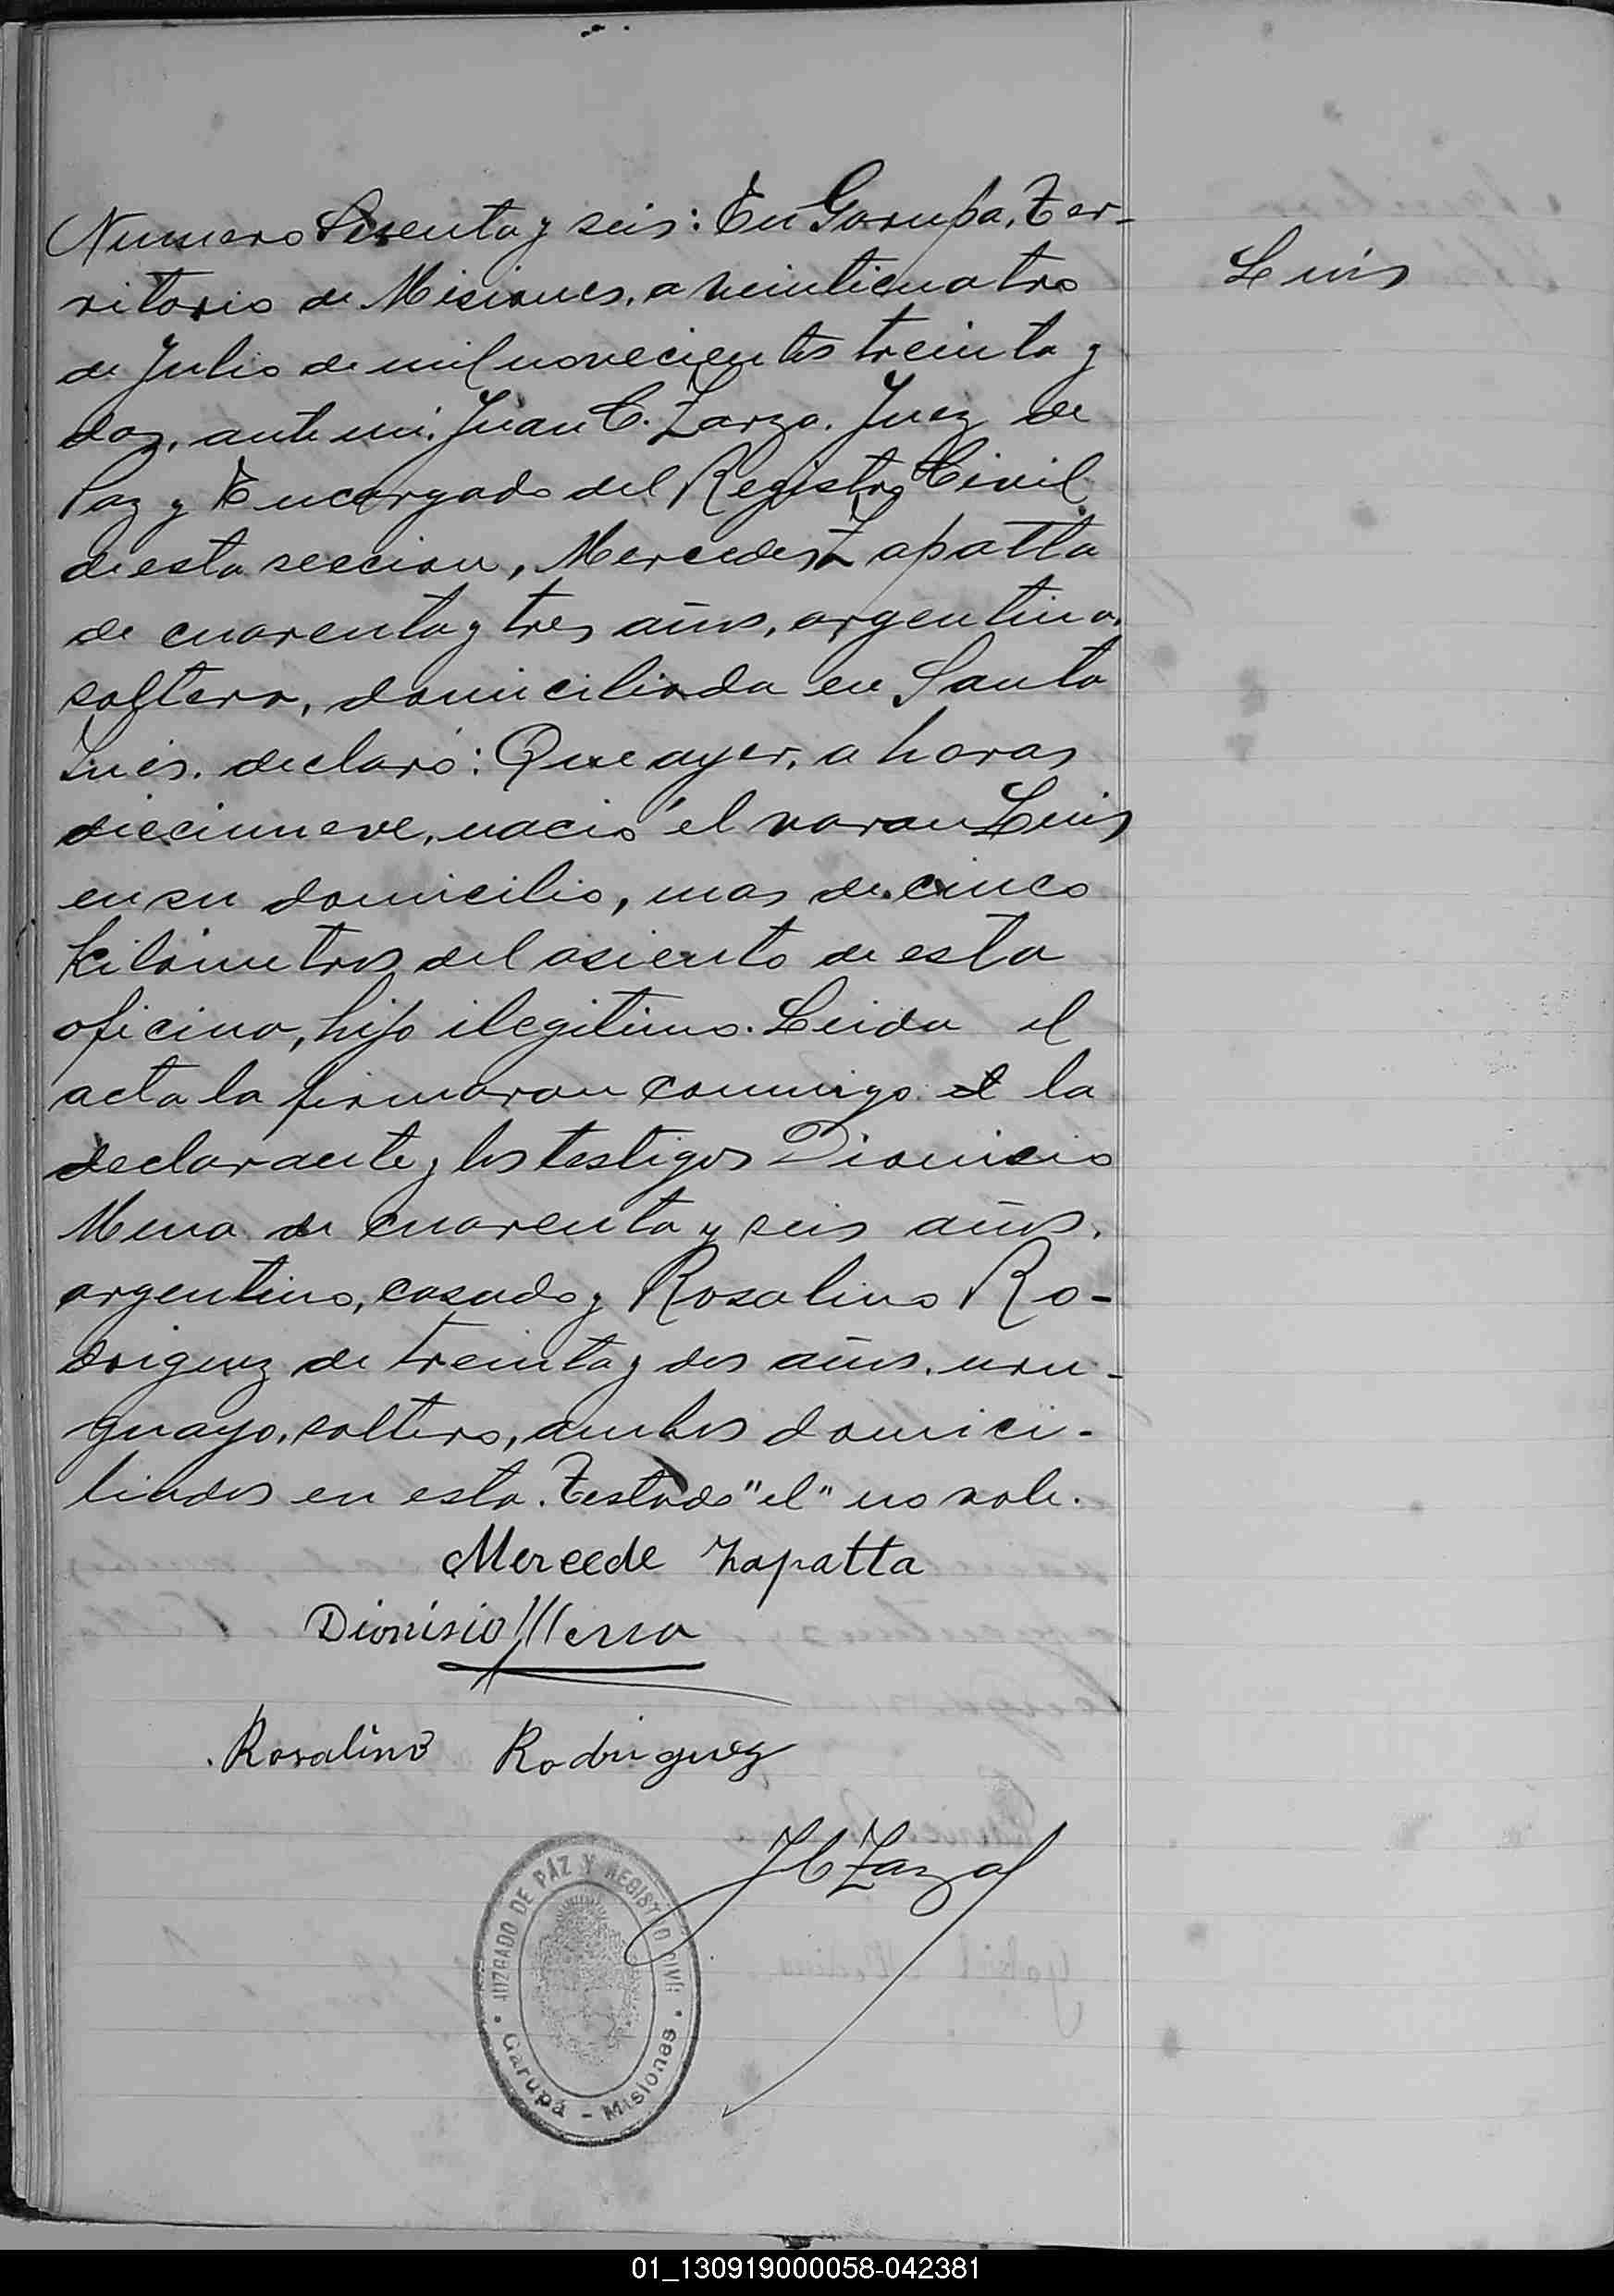 Numero Sesenta y seis: En Garupa, Ter-
ritorio de Misiones, a veinticuatro
de Julio de mil novecientos treinta y
dos, ante mi, Juan C. Zarza, Juez de
Paz y Encargado del Registro Civil
de esta seccion, Mercedes Zapatta
de cuarenta y tres años, argentina,
soltera, domiciliada en Santa
Inés, declaró: Que ayer, a horas
diecinueve, nació el varon Luis
en su domicilio, mas de cinco
kilómetros del asiento de esta
oficina, hijo ilegitimo. Leida el
acta la firmaron conmigo el la
declarante y los testigos Dionisio
Mena de cuarenta y seis años,
argentino, casado y Rosalino Ro-
driguez de treinta y dos años, uru-
guayo, soltero, ambos domici-
liados en esta. Testado "el" no vale.
Mercede Zapatta
Dionisio Mena
Rosalino Rodriguez
JC Zarza
JUZGADO DE PAZ Y REGISTRO CIVIL
Garupá - Misiones
Luis
01_130919000058-042381